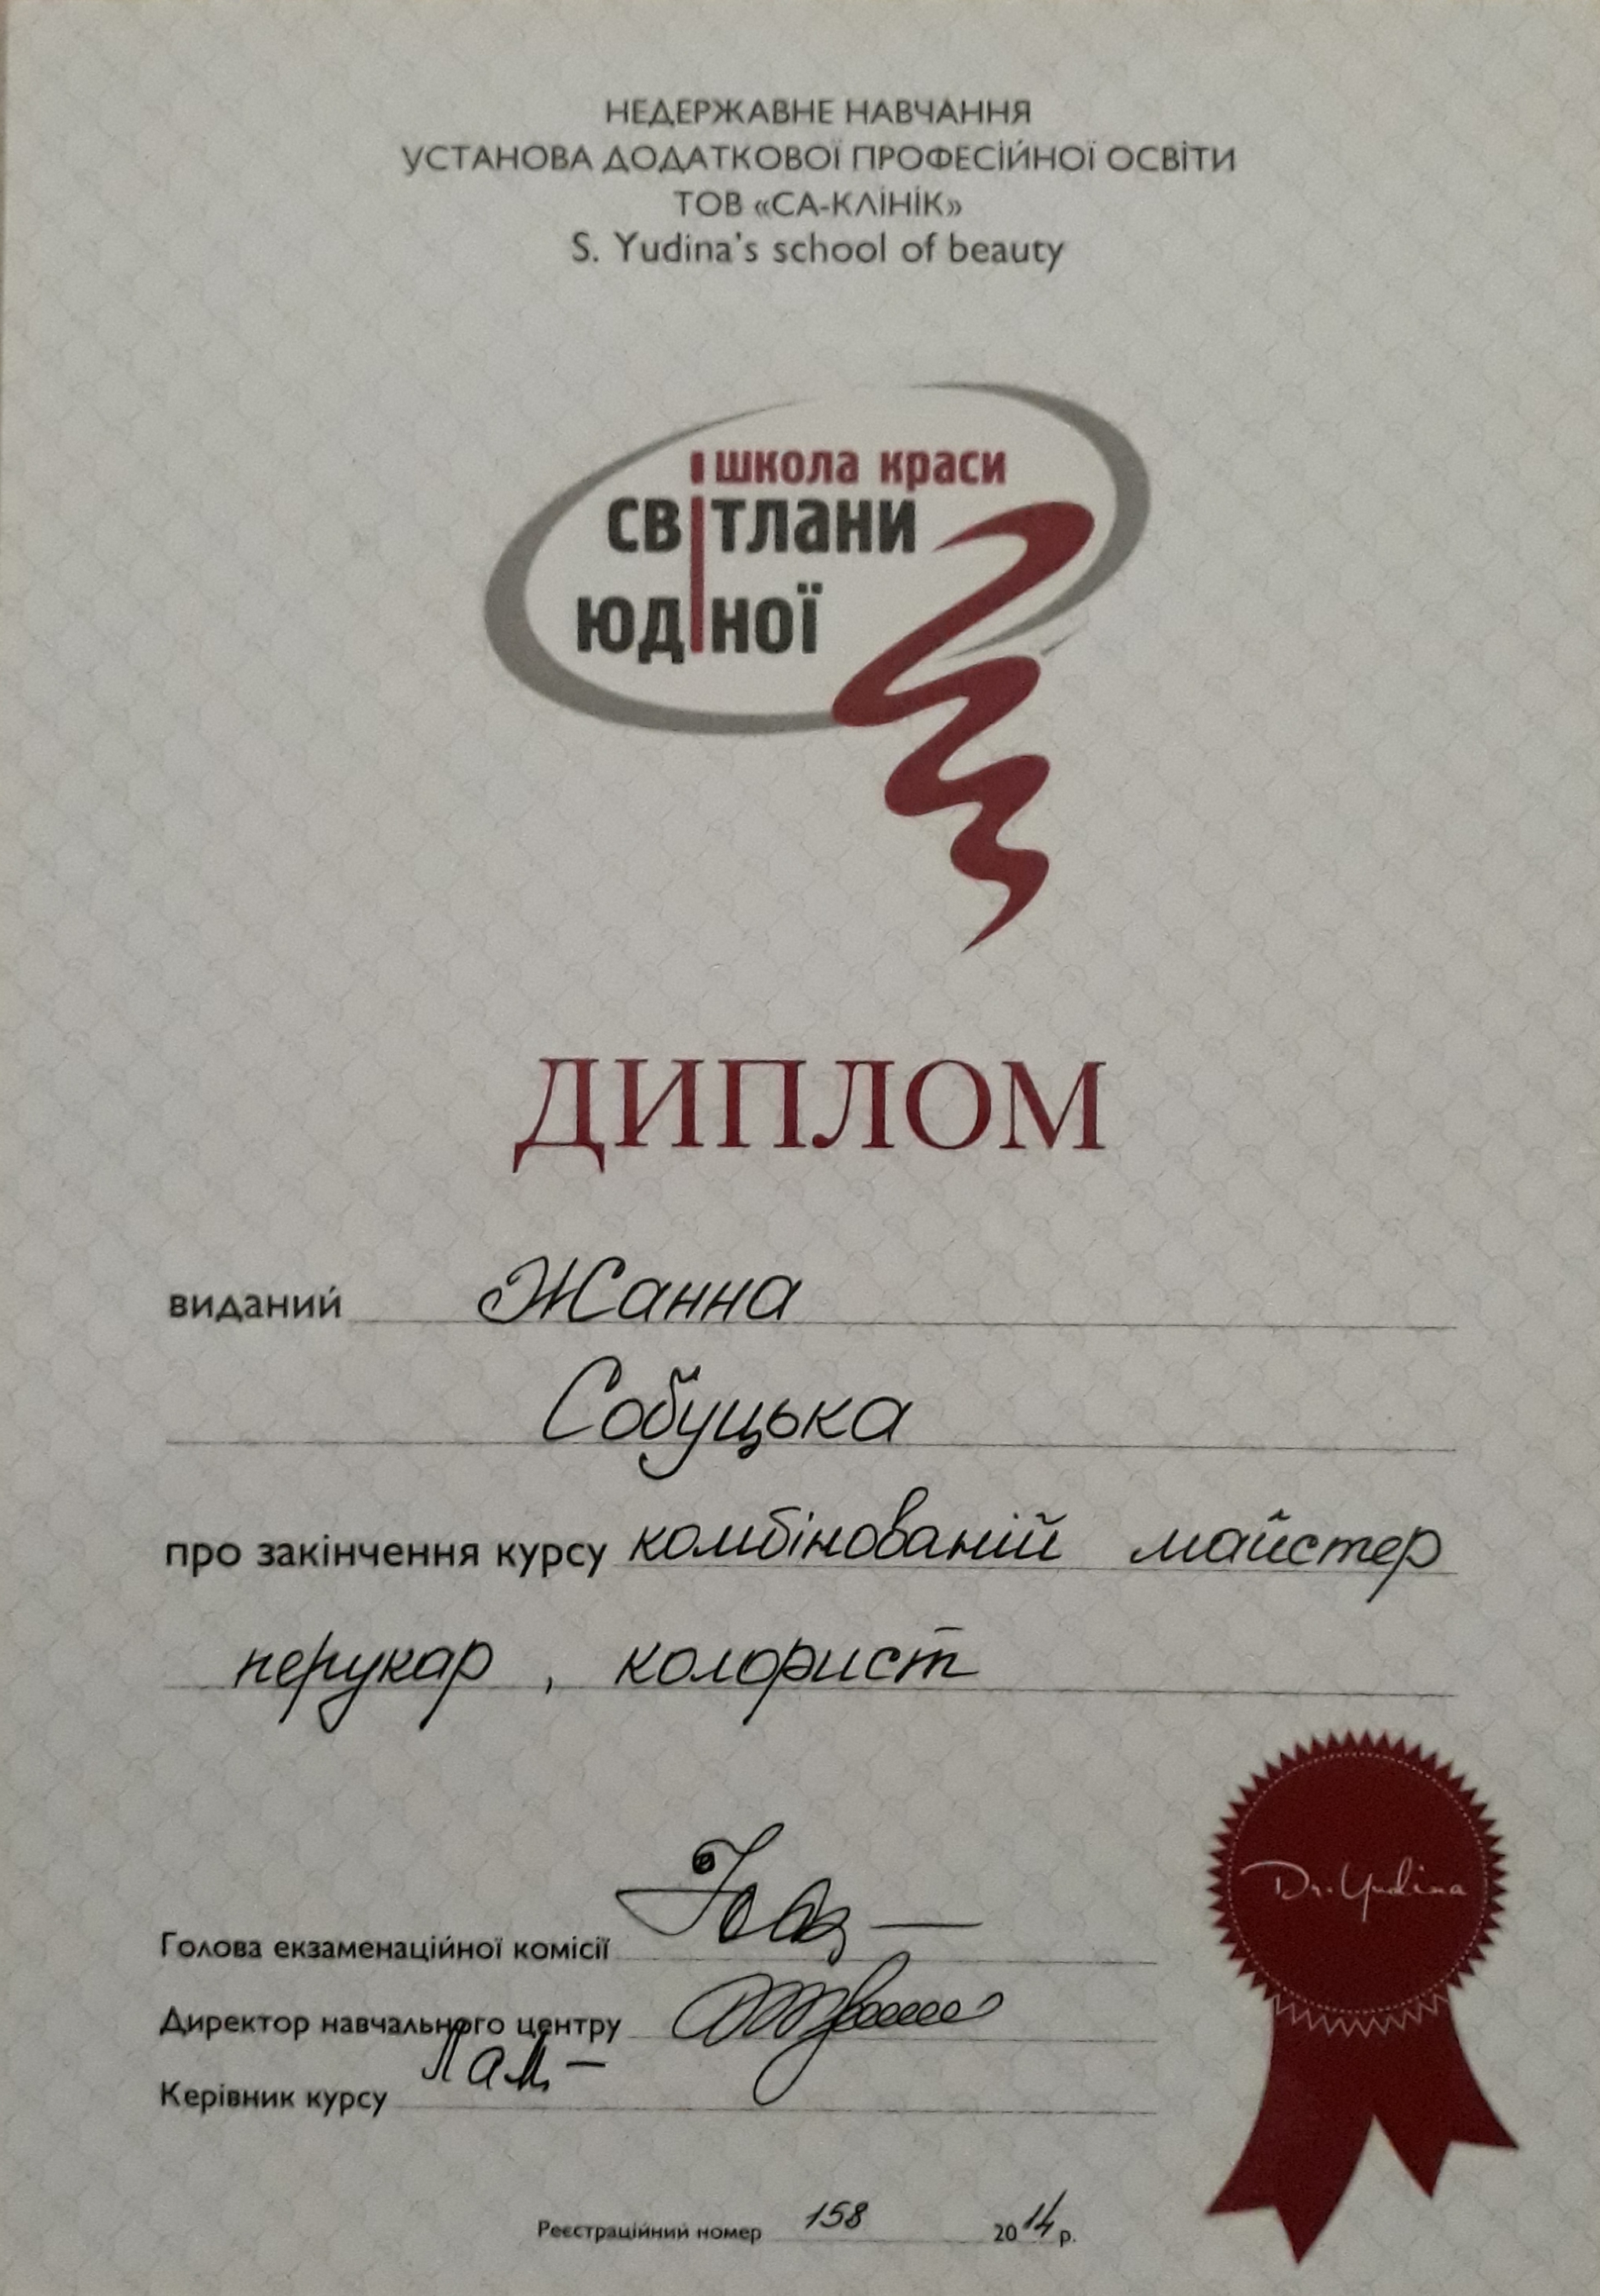 НЕДЕРЖАВНЕ НАВЧАННЯ
УСТАНОВА ДОДАТКОВОЇ ПРОФЕСІЙНОЇ ОСВІТИ
ТОВ «СА-КЛІНІК»
S. Yudina's school of beauty
школа краси
світлани
юдіної
ДИПЛОМ
виданий Жанна
Собуцька
про закінчення курсу комбінованій майстер
перукар, колорист
Голова екзаменаційної комісії
Dr. Yudina
Директор навчального центру
Керівник курсу
Реєстраційний номер 158 2014 р.